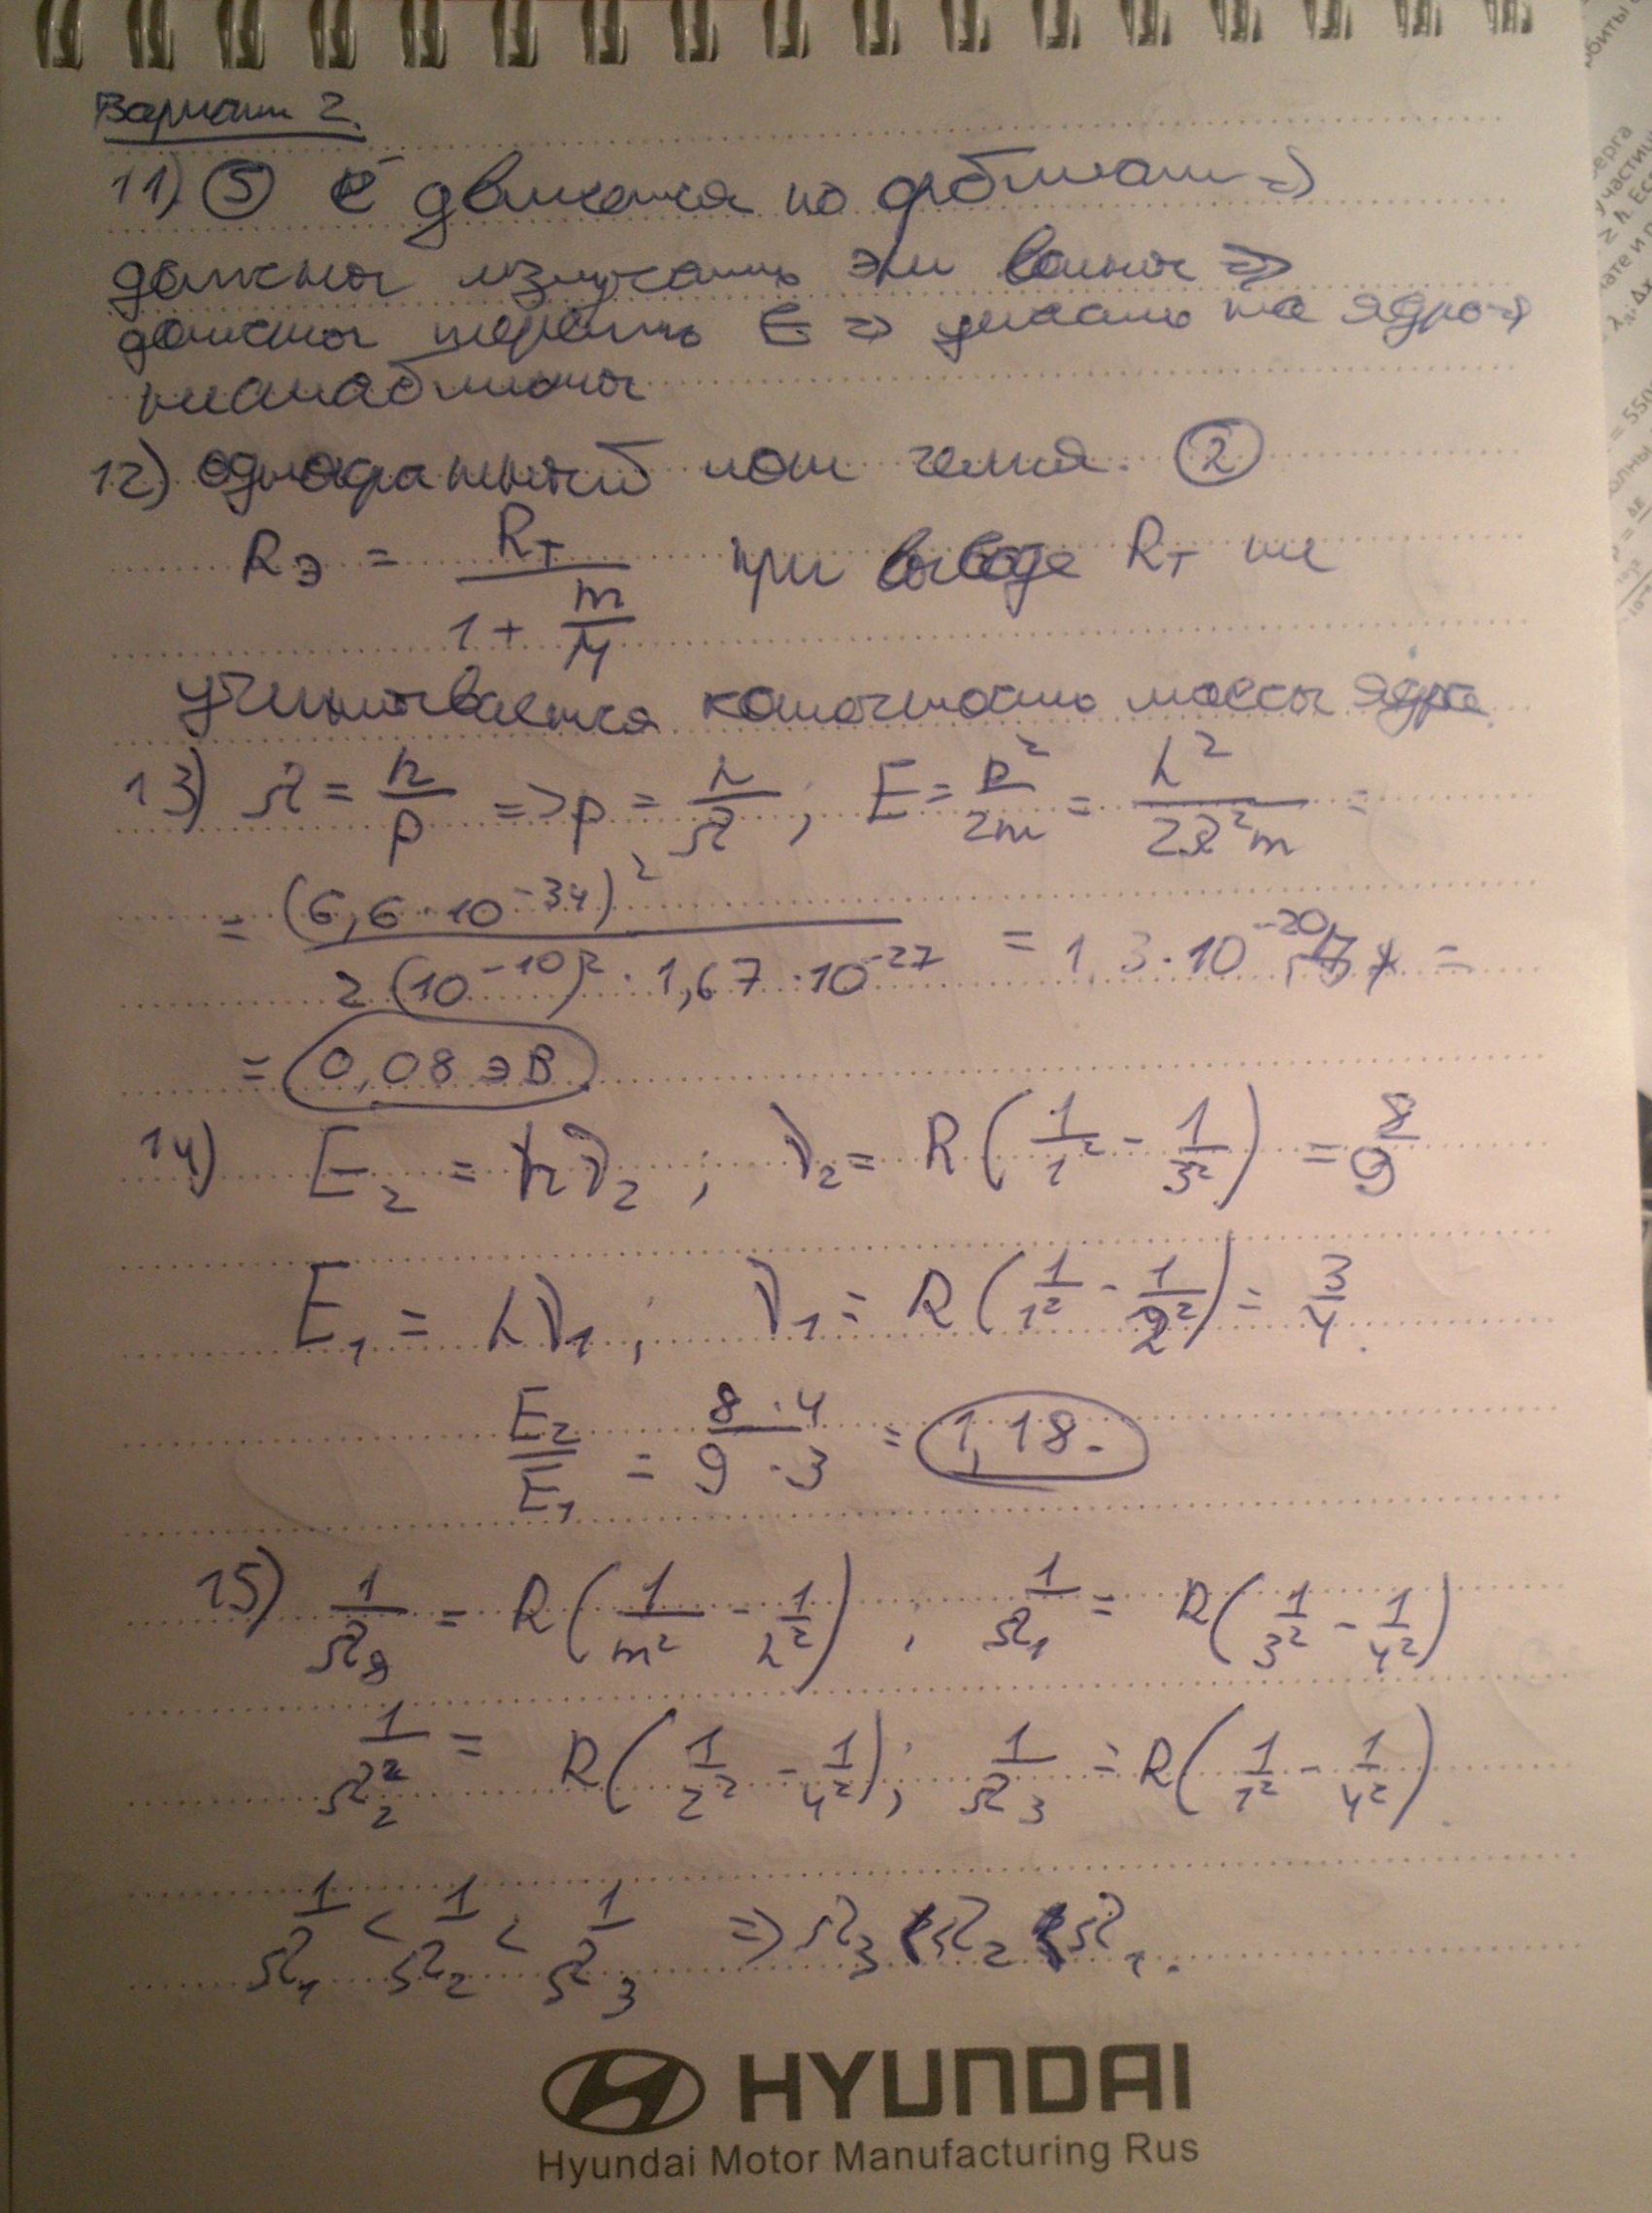 Вариант 2.
11) ⑤ e⁻ движется по орбитам =>
должны излучать эм волны =>
должны терять E => упасть на ядро =>
нестабильны
12) однократный ион гелия. ②
Rэ = Rт / (1 + m/M) при выводе Rт не
учитывается конечность массы ядра
13) λ = h/p => p = h/λ ; E = p²/2m = h²/2λ²m =
= (6,6·10⁻³⁴)² / 2(10⁻¹⁰)²·1,67·10⁻²⁷ = 1,3·10⁻²⁰ Дж =
= 0,08 эВ
14) E₂ = hν₂ ; ν₂ = R(1/1² - 1/3²) = 8/9
E₁ = hν₁ ; ν₁ = R(1/1² - 1/2²) = 3/4.
E₂/E₁ = 8·4 / 9·3 = 1,18.
15) = R(1/m² - 1/n²) ; 1/λ₁ = R(1/3² - 1/4²)
1/λ₂ = R(1/2² - 1/4²) ; 1/λ₃ = R(1/1² - 1/4²).
1/λ₁ < 1/λ₂ < 1/λ₃ => λ₃ < λ₂ < λ₁.
HYUNDAI
Hyundai Motor Manufacturing Rus